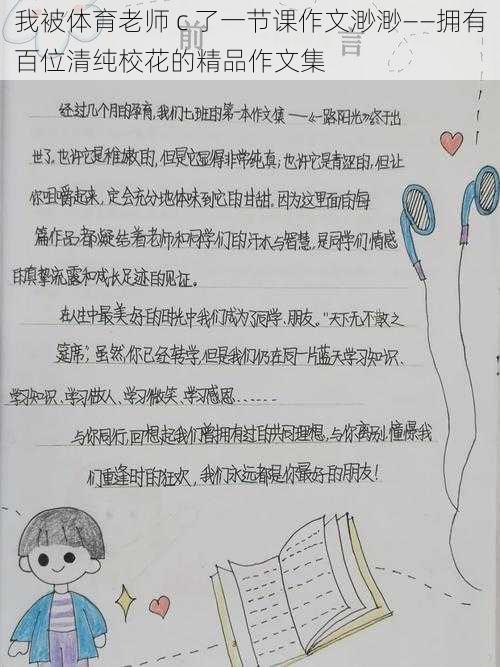 我被体育老师 c 了一节课作文渺渺——拥有
百位清纯校花的精品作文集
前 言
经过几个月的孕育,我们七班的第一本作文集——《一路阳光》终于出
世了。也许它是稚嫩的,但是它显得非常纯真;也许它是青涩的,但让
你咀嚼起来,定会充分地体味到它的甘甜。因为这里面的每
篇作品都凝结着老师和同学们的汗水与智慧,是同学们情感
的真挚流露和成长足迹的见证。
在人生中最美好的时光中我们成为了同学、朋友。“天下无不散之
筵席”,虽然你已经转学,但是我们仍在同一片蓝天学习知识、
学习知识、学习做人、学习微笑、学习感恩......
与你同行,回想起我们曾拥有过的共同理想,与你离别,憧憬我
们重逢时的狂欢,我们永远都是你最好的朋友!